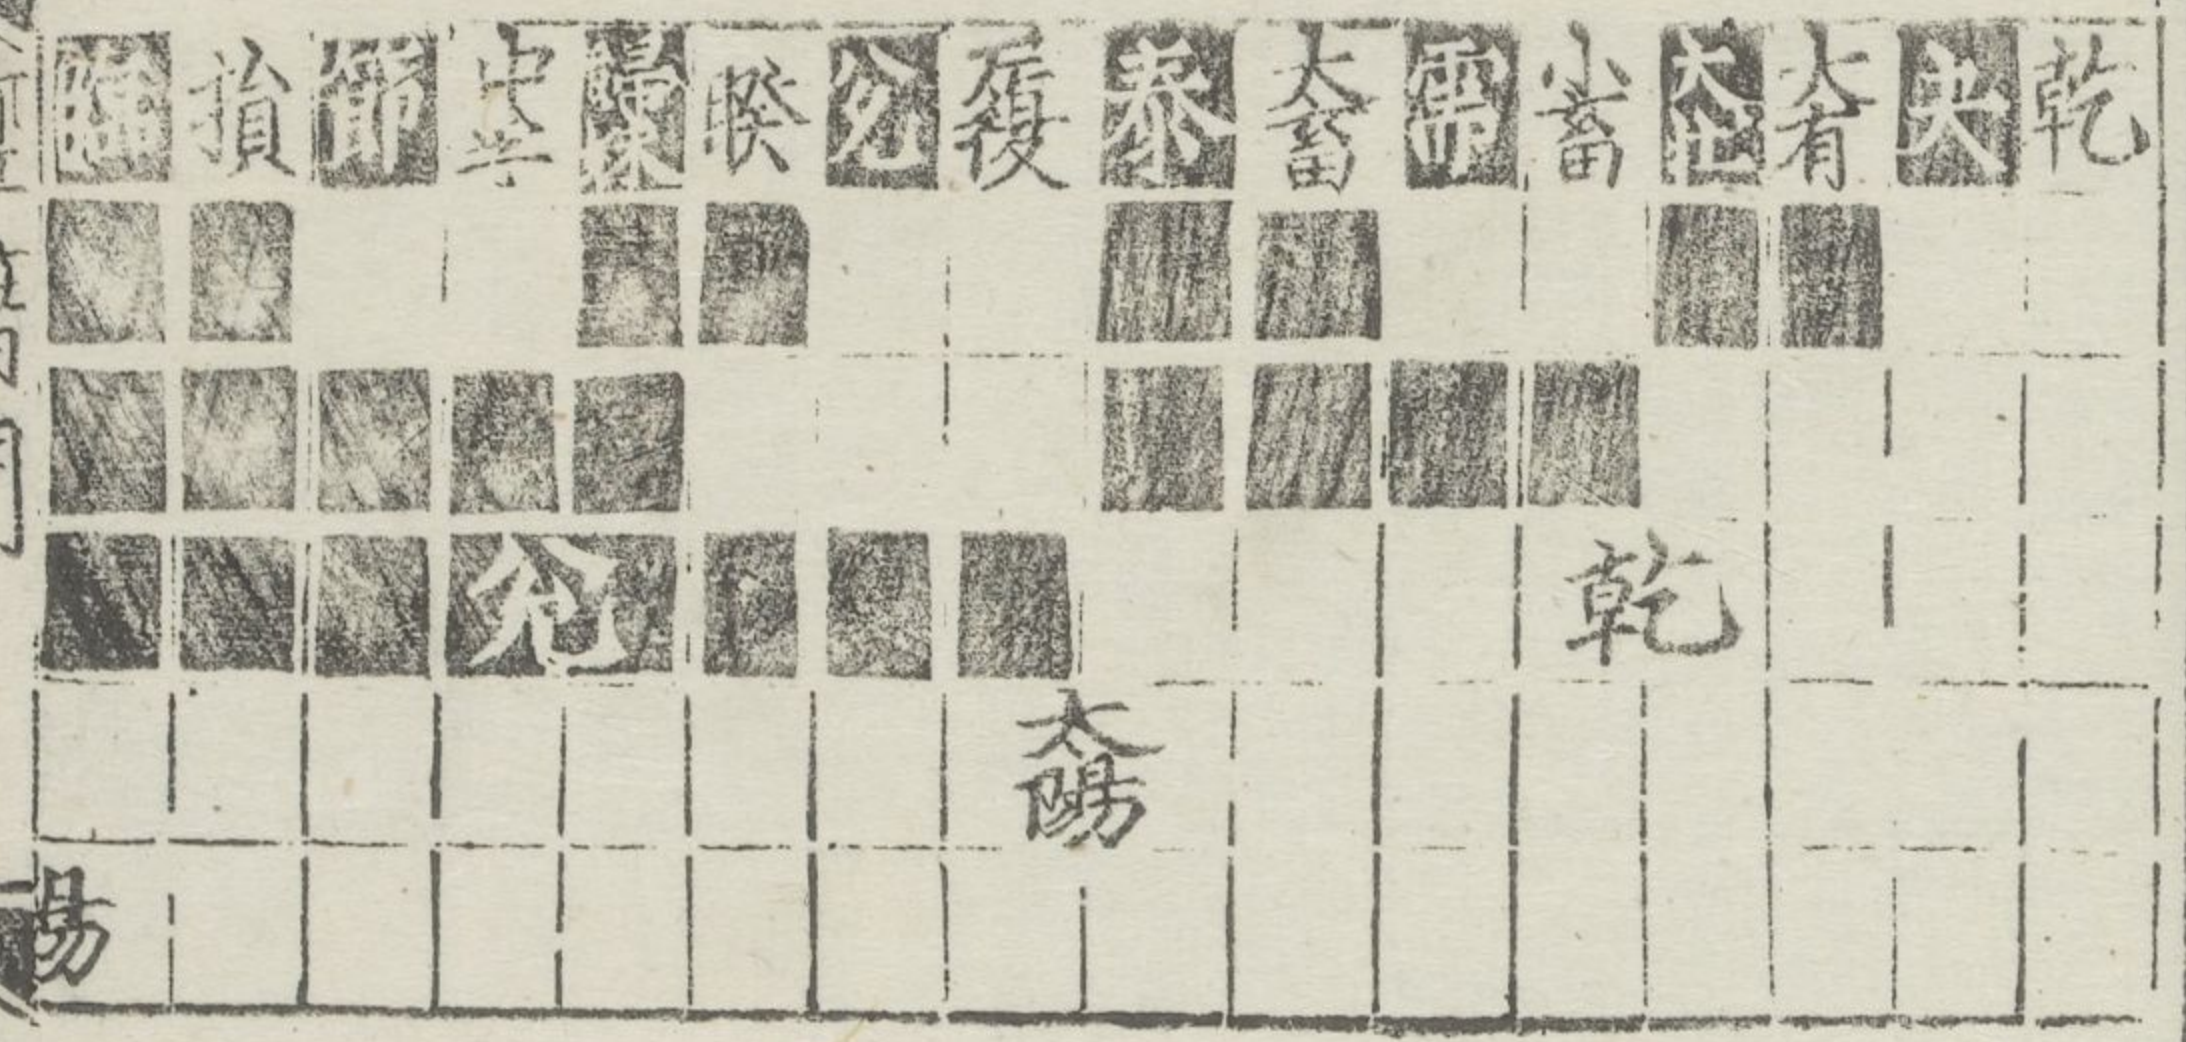 乾
夬
大有
大壯
小畜
需
大畜
泰
履
兌
睽
歸妹
中孚
節
損
臨
乾
兌
太陽
陽